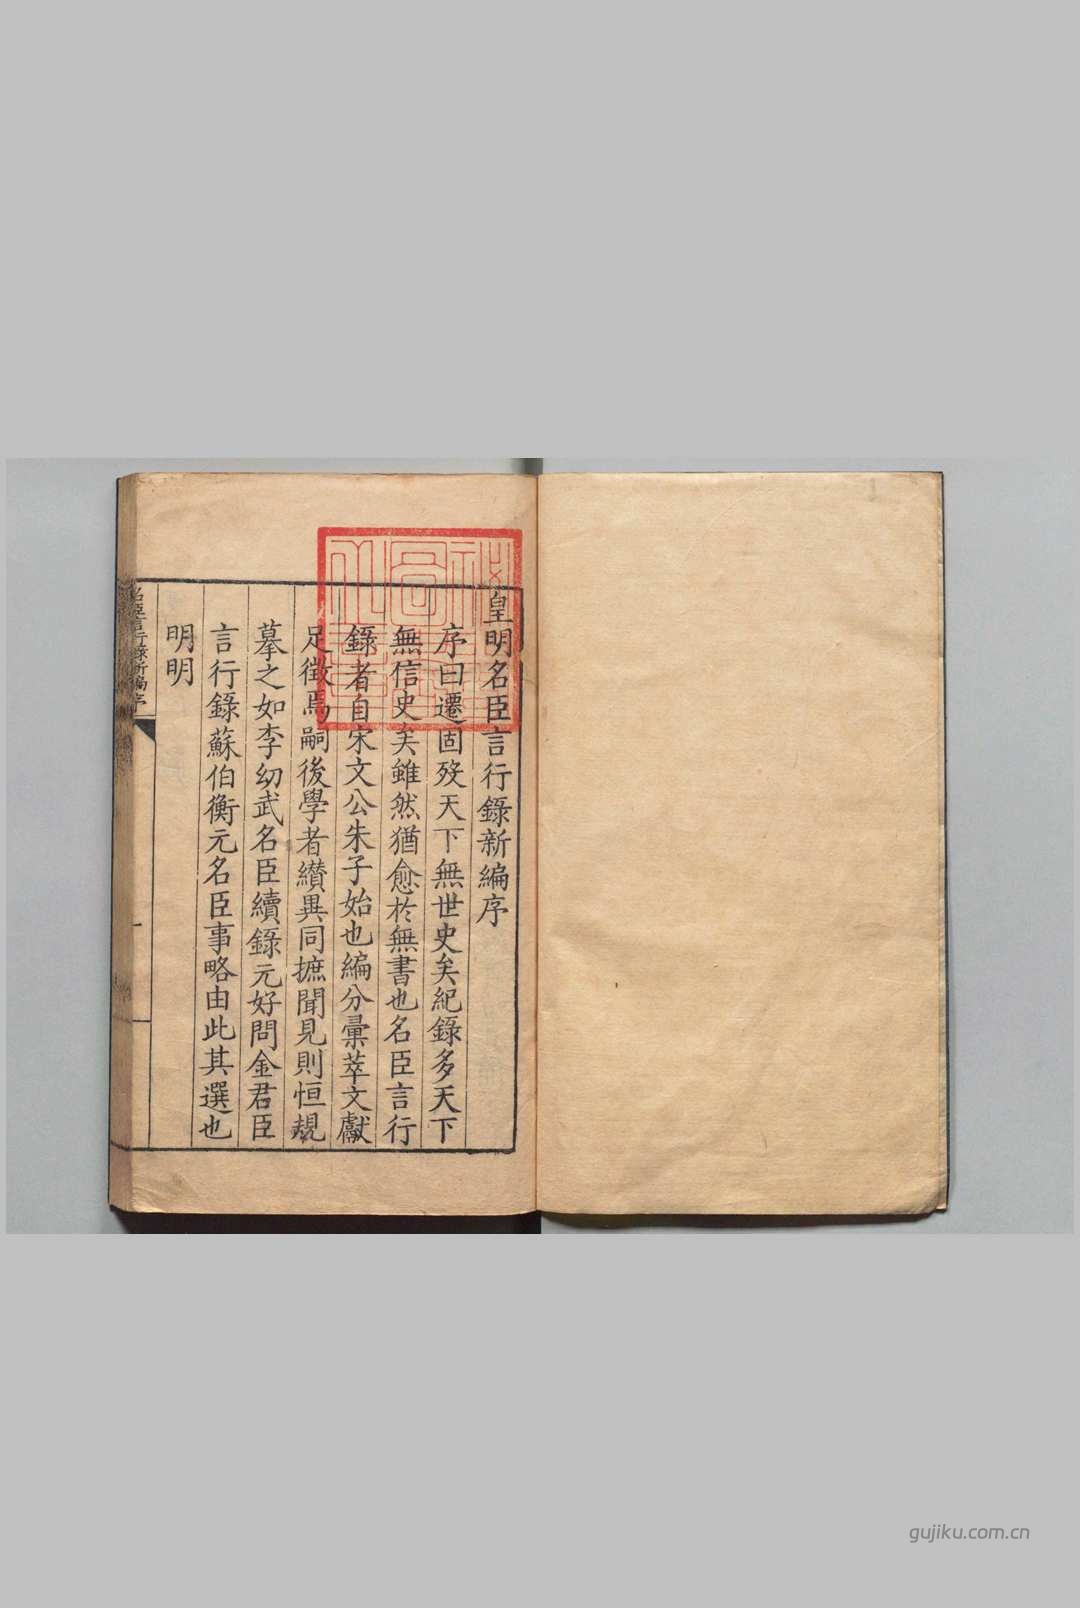 皇明名臣言行錄新編序
序曰遷固歿天下無世史矣紀錄多天下
無信史矣雖然猶愈於無書也名臣言行
錄者自宋文公朱子始也編分彙萃文獻
足徵焉嗣後學者纉異同摭聞見則恒規
摹之如李幼武名臣續錄元好問金君臣
言行錄蘇伯衡元名臣事略由此其選也
明明
名臣言行錄新編序
gujiku.com.cn